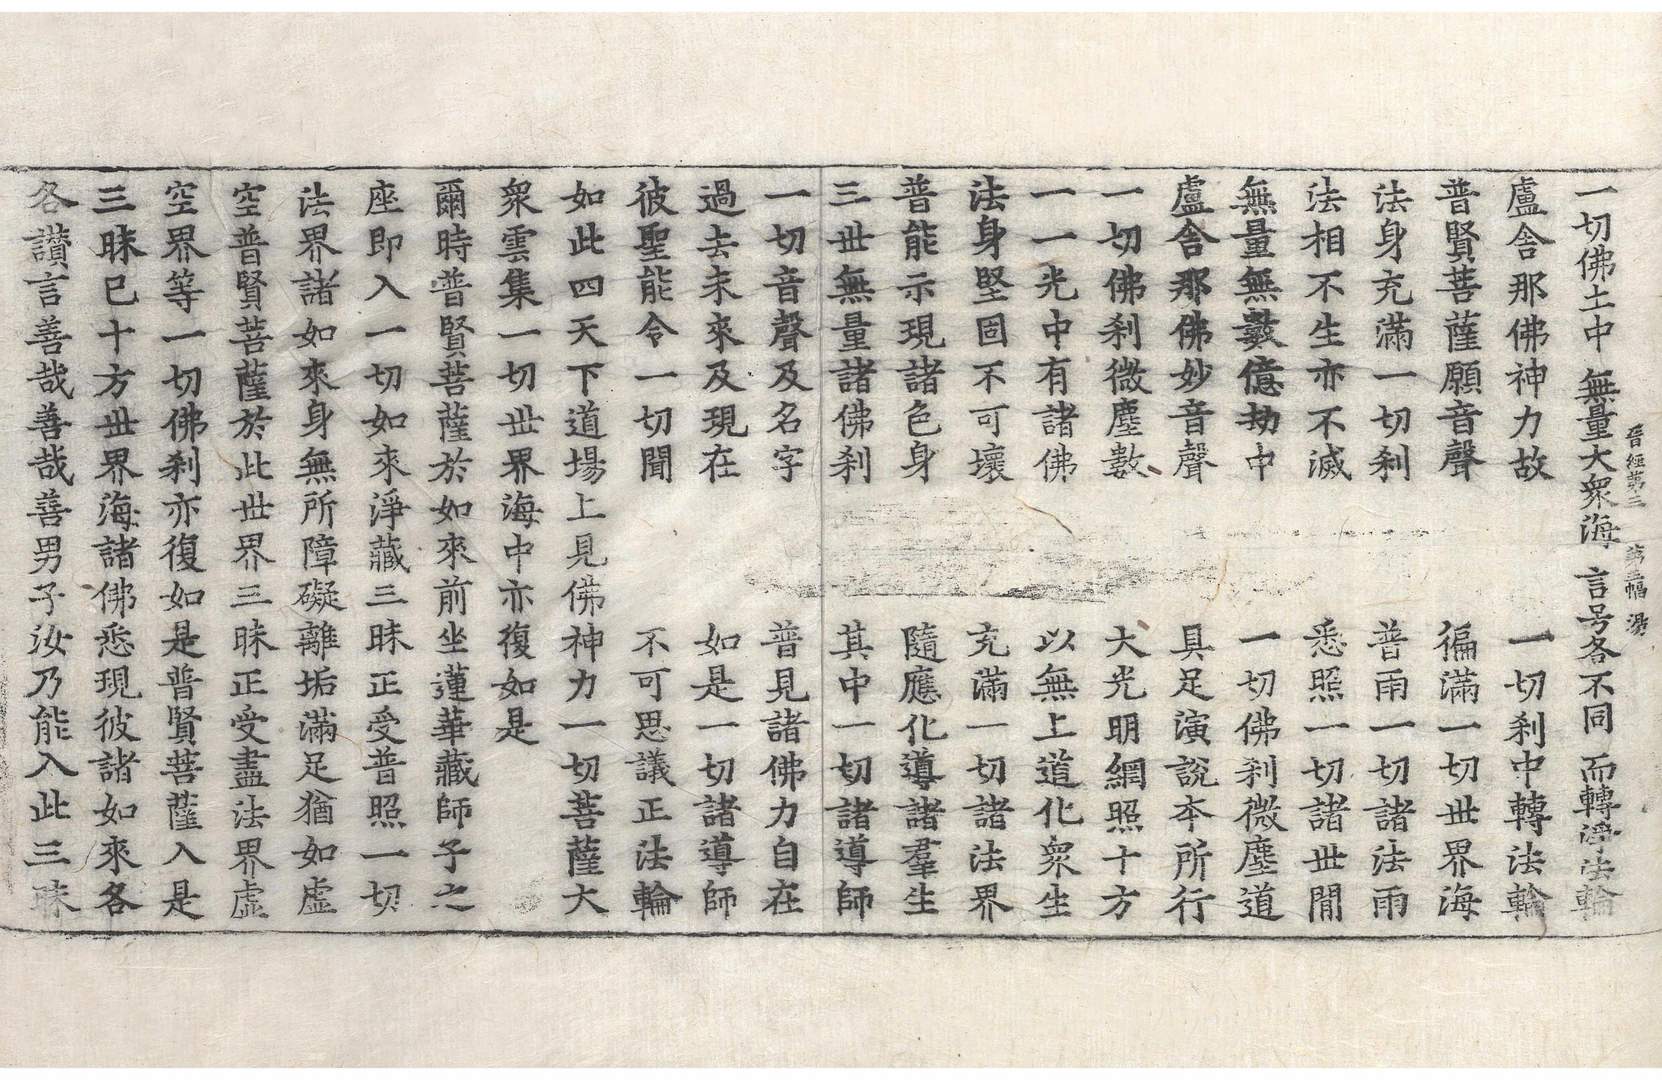 晉經第三　第三幅　湯
一切佛土中　無量大衆海　言号各不同　而轉淨法輪
盧舍那佛神力故　一切刹中轉法輪
普賢菩薩願音聲　徧滿一切世界海
法身充滿一切刹　普雨一切諸法雨
法相不生亦不滅　悉照一切諸世閒
無量無數億劫中　一切佛刹微塵道
盧舍那佛妙音聲　具足演說本所行
一切佛刹微塵數　大光明網照十方
一一光中有諸佛　以無上道化衆生
法身堅固不可壞　充滿一切諸法界
普能示現諸色身　隨應化導諸羣生
三世無量諸佛刹　其中一切諸導師
一切音聲及名字　普見諸佛力自在
過去未來及現在　如是一切諸導師
彼聖能令一切聞　不可思議正法輪
如此四天下道場上見佛神力一切菩薩大
衆雲集一切世界海中亦復如是
爾時普賢菩薩於如來前坐蓮華藏師子之
座即入一切如來淨藏三昧正受普照一切
法界諸如來身無所障礙離垢滿足猶如虛
空普賢菩薩於此世界三昧正受盡法界虛
空界等一切佛刹亦復如是普賢菩薩入是
三昧已十方世界海諸佛悉現彼諸如來各
各讚言善哉善哉善男子汝乃能入此三昧